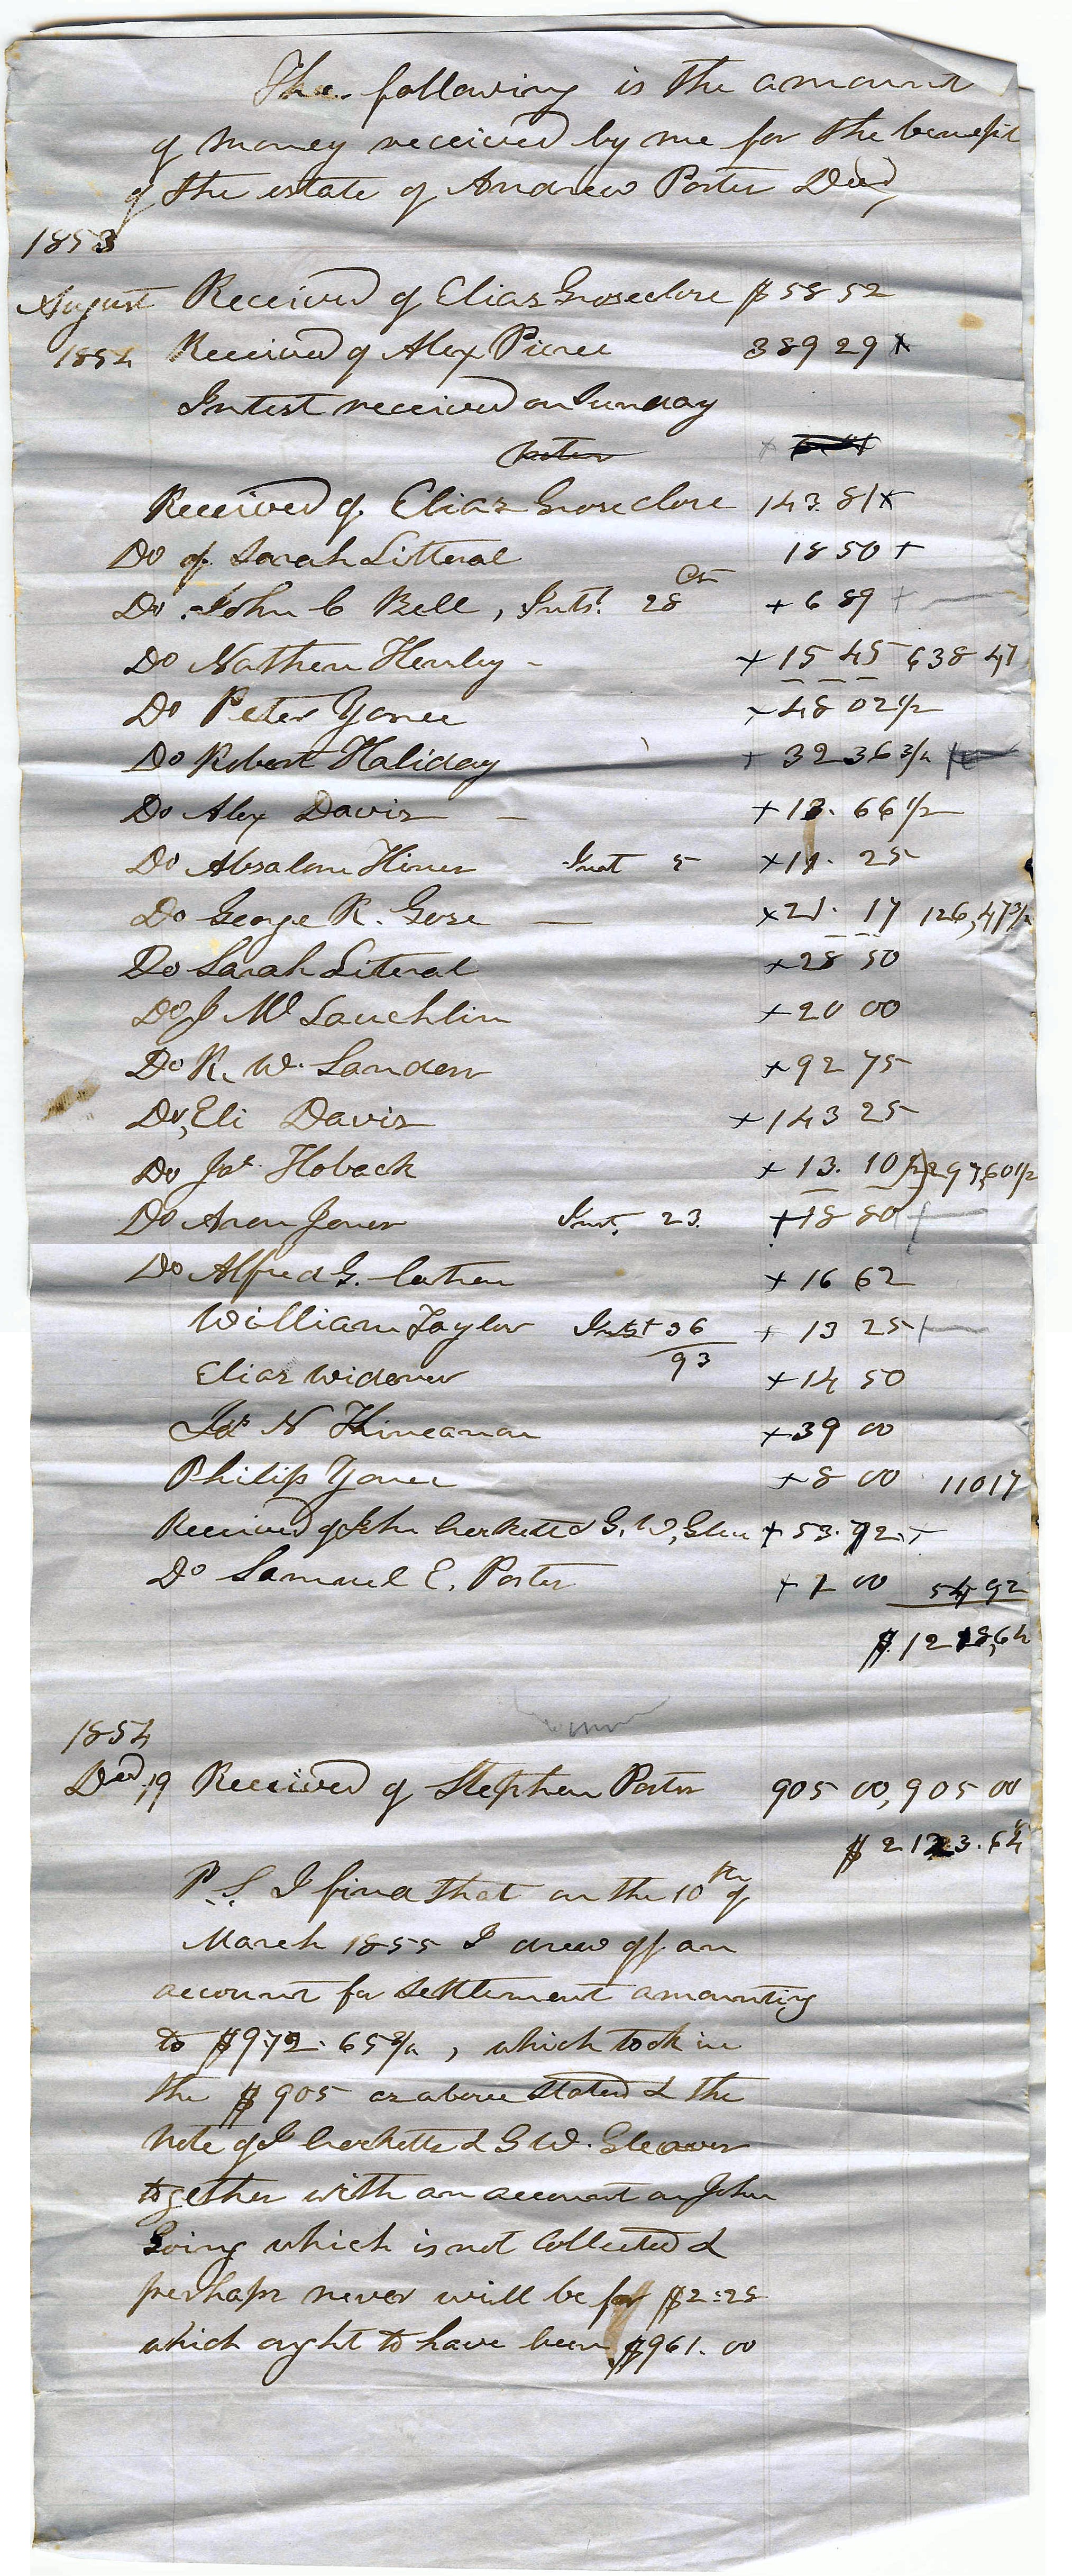 The following is the amount
of money received by me for the benefit
of the estate of Andrew Porter Decd
1853
August Received of Elias Groseclose $58 52
1854 Received of Alex Pierce 389 29 x
Intest received on Sunday
Received of Elias Groseclose 143.81 x
Do of Sarah Litteral 18 50 +
Do John C Bell, Intst 28 Cts + 6 89 +
Do Nathen Henley - + 15 45 638 47
Do Peter Yonce + 48 02 1/2
Do Robert Haliday + 32 36 3/4
Do Alex Davis - + 13.66 1/2
Do Absalom Hiner Inst 5 x 11.25
Do George R. Gose - x 21.17 126,47 3/4
Do Sarah Literal + 28 50
Do J Mc Lauchlin + 20 00
Do R. W. Sanders + 92 75
Do Eli Davis + 143 25
Do Jas Hoback + 13.10 1/2 297,60 1/2
Do Aron Jones Inst, 23. + 18 80 +
Do Alfred G. Cathen + 16 62
William Taylor Intst 36 + 13 25 +
93
Elias Widener + 14 50
Jas N Kincanon + 39 00
Philip Yonce + 8 00 110 17
Received of John Corketts & G. W, Glea + 53.92 +
Do Samuel E. Porter + 1 00 54 92
$1218,64
1854
Decd 19 Received of Stephen Porter 905 00, 905 00
$2123.64
P.S. I find that on the 10th of
March 1855 I drew off an
account for settlement amounting
to $972.65 3/4, which took in
the $905 as above stated & the
Note of J Corketts & G W. Gleaves
together with an account on John
Going which is not Collected &
perhaps never will be for $2=28
which ought to have been $961.00